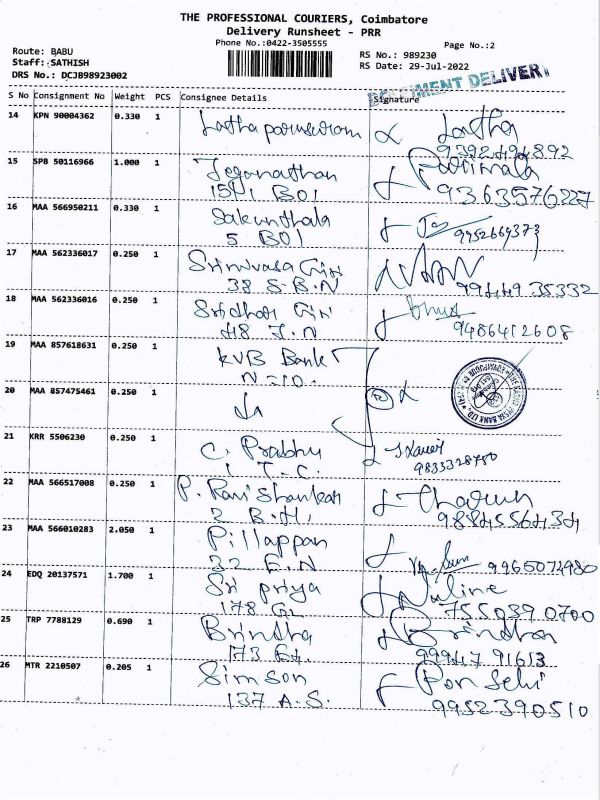 THE PROFESSIONAL COURIERS, Coimbatore
Delivery Runsheet - PRR
Phone No.:0422-3505555
Page No.:2
Route: BABU
Staff: SATHISH
DRS No.: DCJB98923002
RS No.: 989230
RS Date: 29-Jul-2022
DELIVERY
S No Consignment No Weight PCS Consignee Details Signature
14 KPN 90004362 0.330 1 Latha
15 SPB 50116966 1.000 1 Jeganathan Parimala
1541 BOI 9363576227
16 MAA 566950211 0.330 1 Sakunthala
5 BOI 9952669373
17 MAA 562336017 0.250 1 Srinivasa Giri
38 S.B.N 9944935332
18 MAA 562336016 0.250 1 Sridhar Giri
48 J.N 9486412608
19 MAA 857618631 0.250 1 KVB Bank
20 MAA 857475461 0.250 1
21 KRR 5506230 0.250 1 C. Prabhu
1 T.C. 9833328750
22 MAA 566517008 0.250 1 P. Ravi Shankar
2 B.H.
23 MAA 566010283 2.050 1 Pillappan
32 E.N
24 EDQ 20137571 1.700 1 Sri priya
178 GL 7550390700
25 TRP 7788129 0.690 1 Brintha Brindha
99947 91613
26 MTR 2210507 0.205 1 Simson Pon Selvi
137 A.S. 9952390510